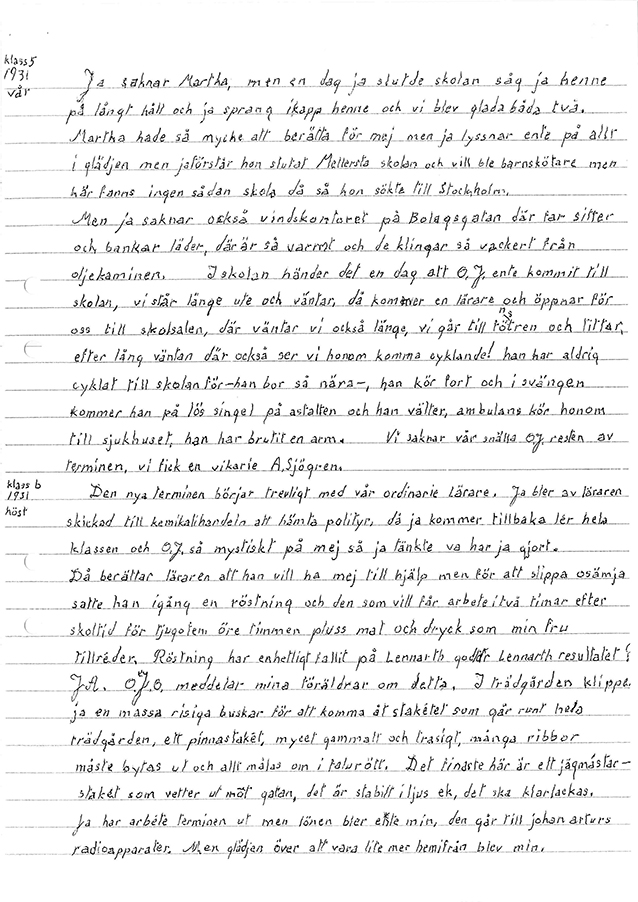 klass 5
1931
vår
Ja saknar Martha, men en dag ja slutde skolan såg ja henne
på långt håll och ja sprang ikapp henne och vi blev glada båda två.
Martha hade så myche att berätta för mej men ja lyssnar ente på allt
i glädjen men ja förstår hon slutat Mellersta skolan och vill ble barnskötare men
här fanns ingen sådan skola då så hon sökte till Stockholm.
Men ja saknar också vindskontoret på Bolagsgatan där far sitter
och bankar läder, där är så varmt och de klingar så vackert från
oljekaminen. I skolan händer det en dag att O.J. ente kommit till
skolan, vi står länge ute och väntar, då kommer en lärare och öppnar för
oss till skolsalen, där väntar vi också länge, vi går till fönstren och tittar,
efter lång väntan där också ser vi honom komma cyklande! han har aldrig
cyklat till skolan för-han bor så nära-, han kör fort och i svängen
kommer han på lös singel på asfalten och han välter, ambulans kör honom
till sjukhuset, han har brutit en arm. Vi saknar vår snälla O.J. resten av
terminen, vi fick en vikarie A.Sjögren.
klass 6
1931
höst
Den nya terminen börjar trevligt med vår ordinarie lärare. Ja bler av läraren
skickad till kemikalihandeln att hämta polityr, då ja kommer tillbaka lér hela
klassen och O.J. så mystiskt på mej så ja tänkte va har ja gjort.
Då berättar läraren att han vill ha mej till hjälp men för att slippa osämja
satte han igång en röstning och den som vill får arbete i två timar efter
skoltid för tjugofem öre timmen pluss mat och dryck som min fru
tillréder. Röstning har enhetligt fallit på Lennarth godtar Lennarth resultatet?
JA. O.J.O. meddelar mina föräldrar om detta. I trädgården klipper
ja en massa risiga buskar för att komma åt staketet som går runt hela
trädgården, ett pinnastakét, mycet gammalt och trasigt, många ribbor
måste bytas ut och allt målas om i falurött. Det finaste här är ett jägmästar-
stakét som vetter ut möt gatan, det är stabilt i ljus ek, det ska klarlackas.
Ja har arbete terminen ut men lönen bler ente min, den går till johan arturs
radioapparater. Men glädjen över att vara lite mer hemifrån blev min.